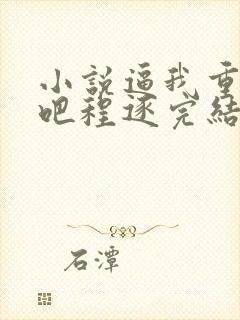 小說逼我重
吧程逐完結
石潭